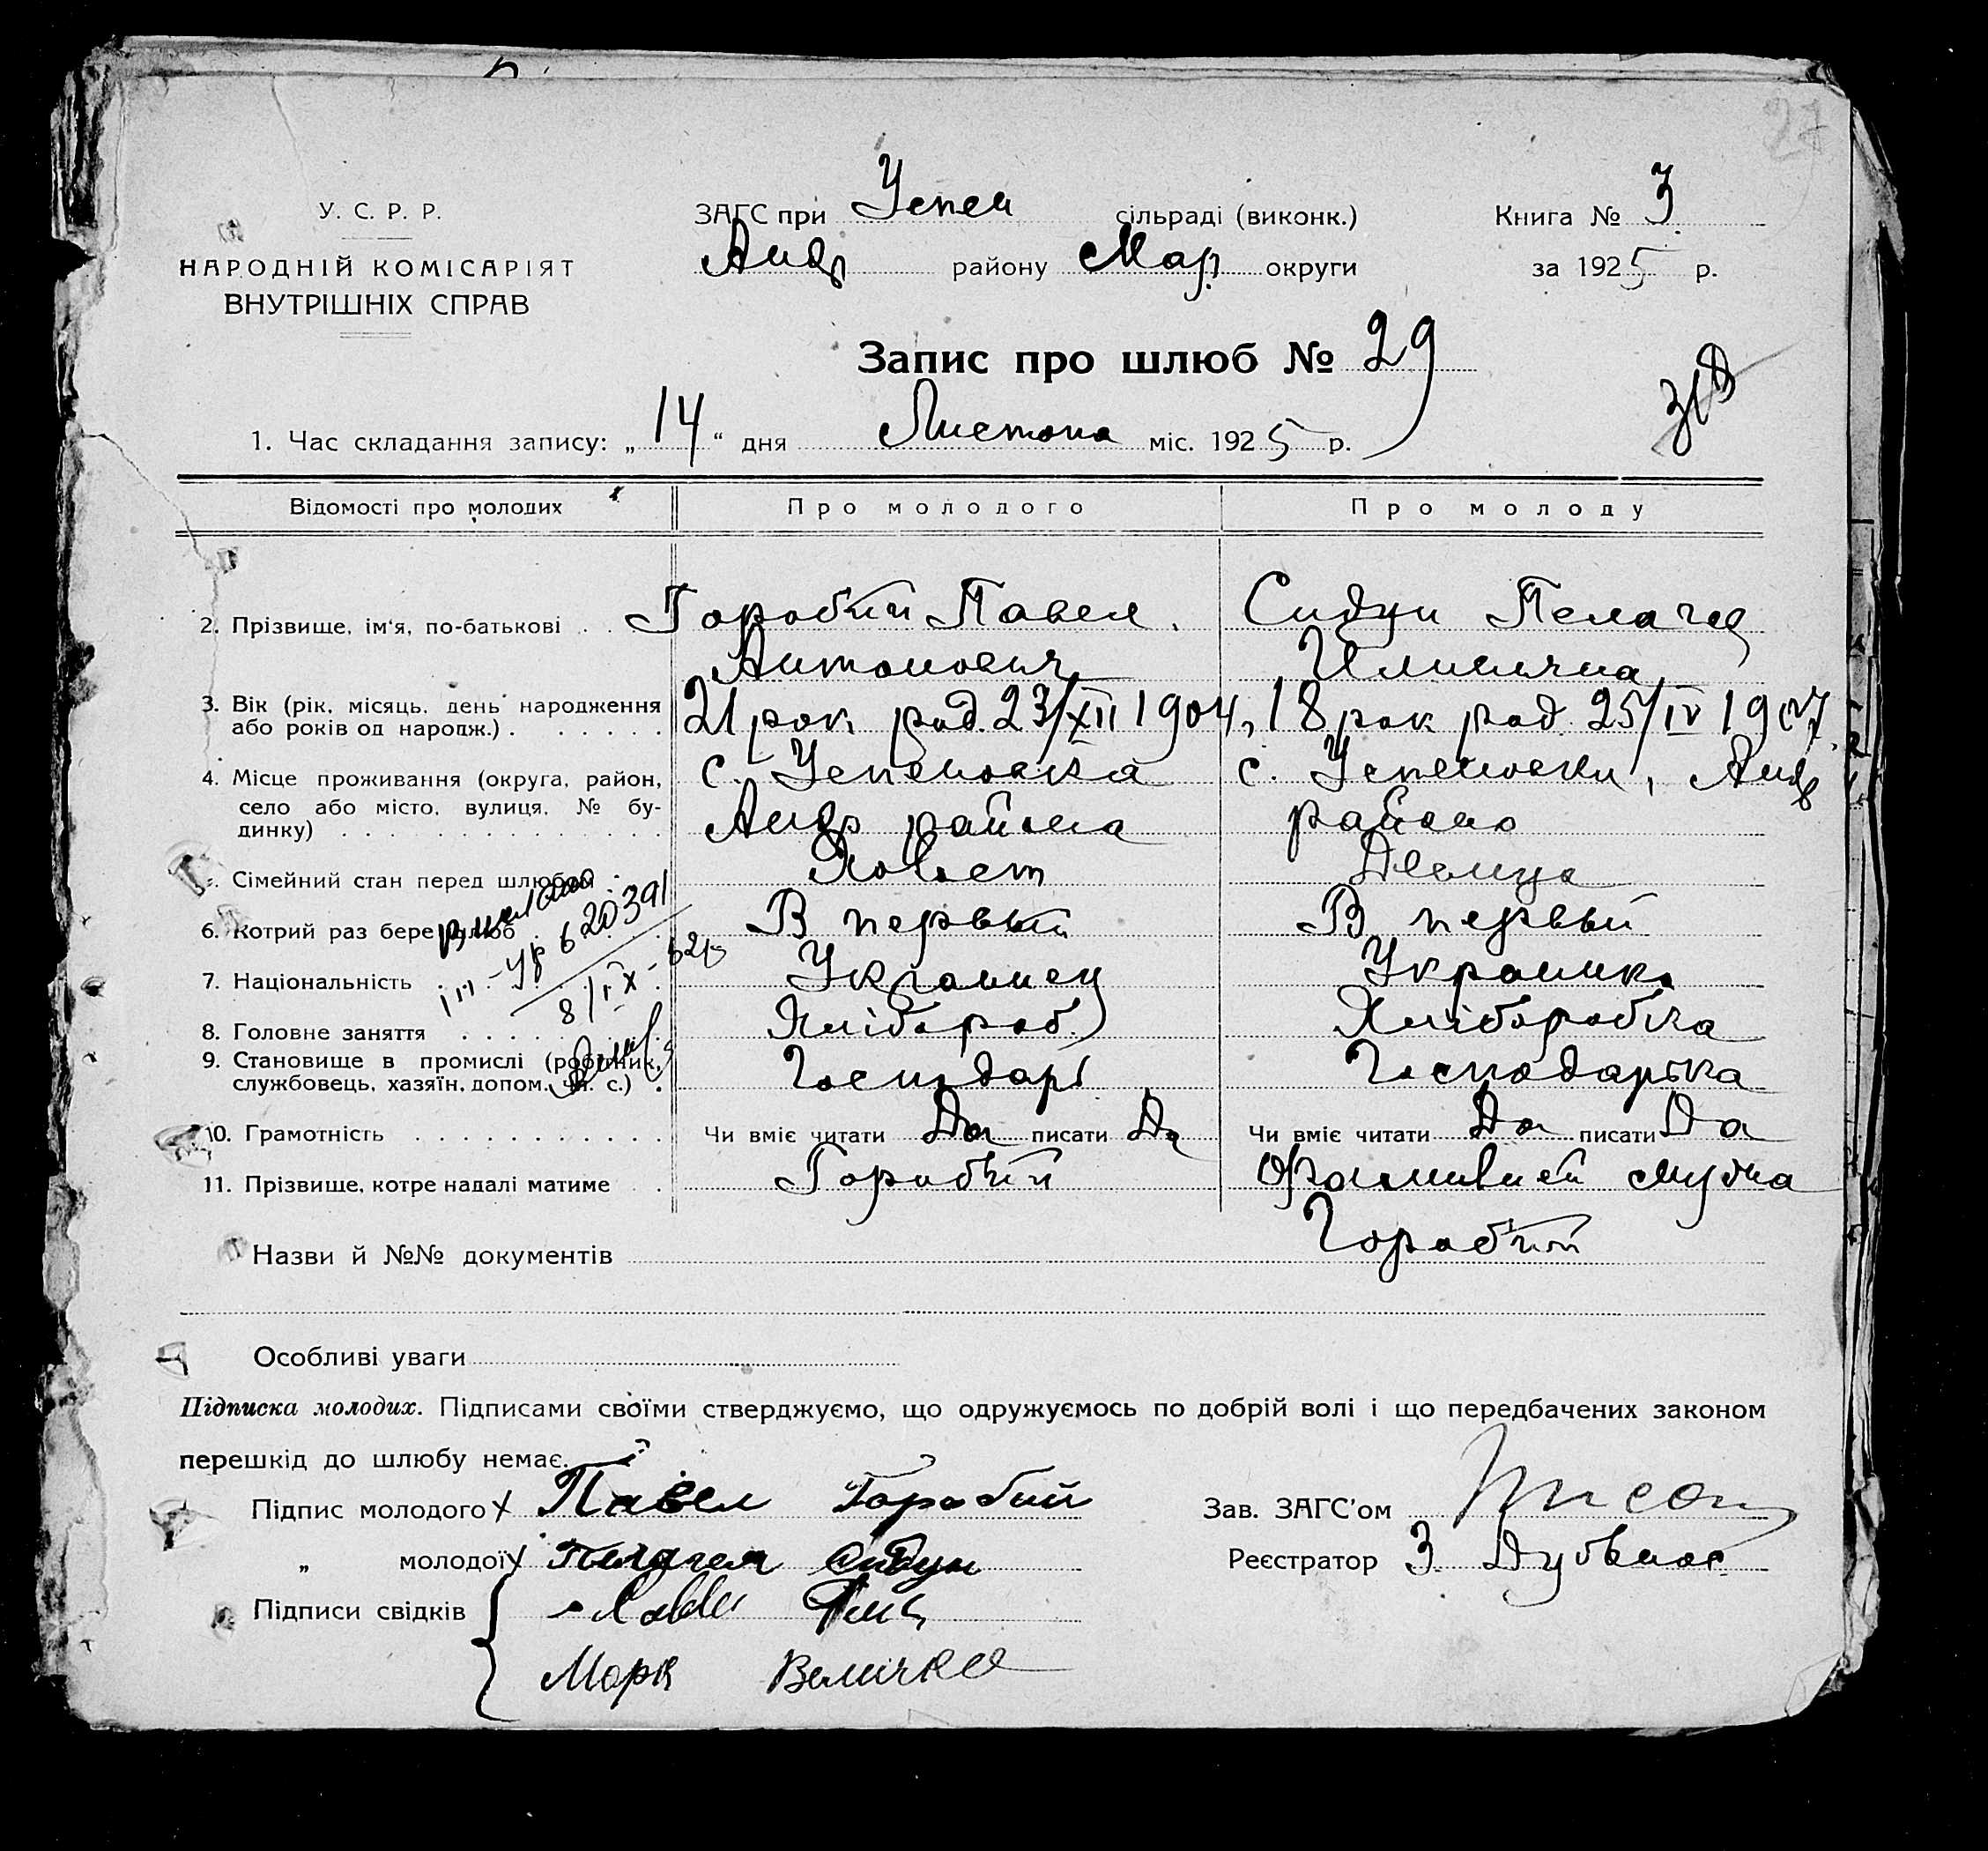 27
У. С. Р. Р.
НАРОДНІЙ КОМІСАРІЯТ
ВНУТРІШНІХ СПРАВ
ЗАГС при Успен сільраді (виконк.)
Андр району Мар. округи
Книга № 3
за 1925 р.
Запис про шлюб № 29
1. Час складання запису: „14“ дня Листопа міс. 1925 р.
Відомості про молодих Про молодого Про молоду
2. Прізвище, ім'я, по-батькові . . Горобий Павел. Сидун Пелагея
Антонович
3. Вік (рік, місяць, день народження 21 рок род. 23/XII 1904, 18 рок род. 25/IV 1907
або років од народж.) . . . . . .
4. Місце проживання (округа, район, с. Успеновка с. Успеновки, Андр
село або місто, вулиця, № бу- Андр района району
динку) . . . . . . . . . . . . . .
Сімейний стан перед шлюбом . Холост Девица
6. Котрий раз бере шлюб В первый В первый
7. Національність Украинец Украинка
III-УР 620391
8/IX-62г
8. Головне заняття . . . . Хлібороб Хліборобка
9. Становище в промислі (робітник, Господарь Господарька
службовець, хазяїн, допом. чл. с.) .
10. Грамотність . . . . . . . . . . . Чи вміє читати Да писати Да Чи вміє читати Да писати Да
11. Прізвище, котре надалі матиме . Горобий Фамилией мужа
Горобий
Назви й №№ документів
Особливі уваги
Підписка молодих. Підписами своїми стверджуємо, що одружуємось по добрій волі і що передбачених законом
перешкід до шлюбу немає.
Підпис молодого Павел Горобий
„ молодої Пелагея Сидун
Підписи свідків
Марк Величко
Зав. ЗАГС'ом
Реєстратор З